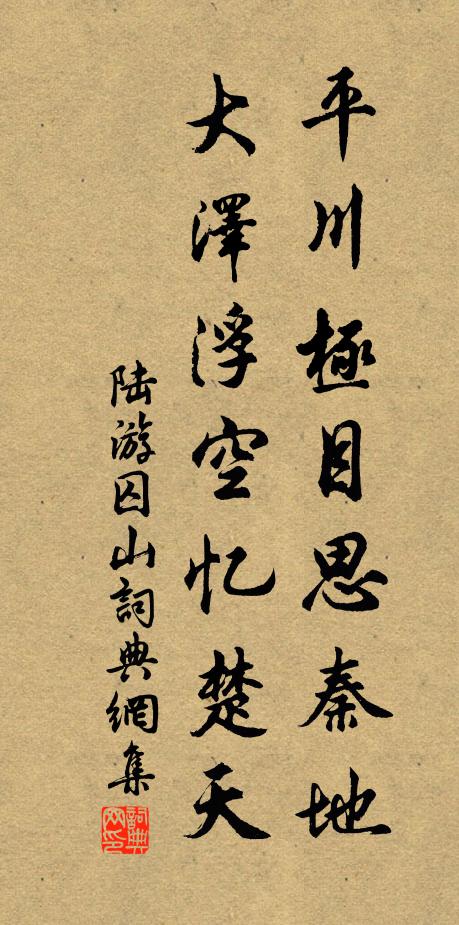 平川極目思秦地
大澤浮空忆楚天
陆游囚山詞典網集
詞典网印